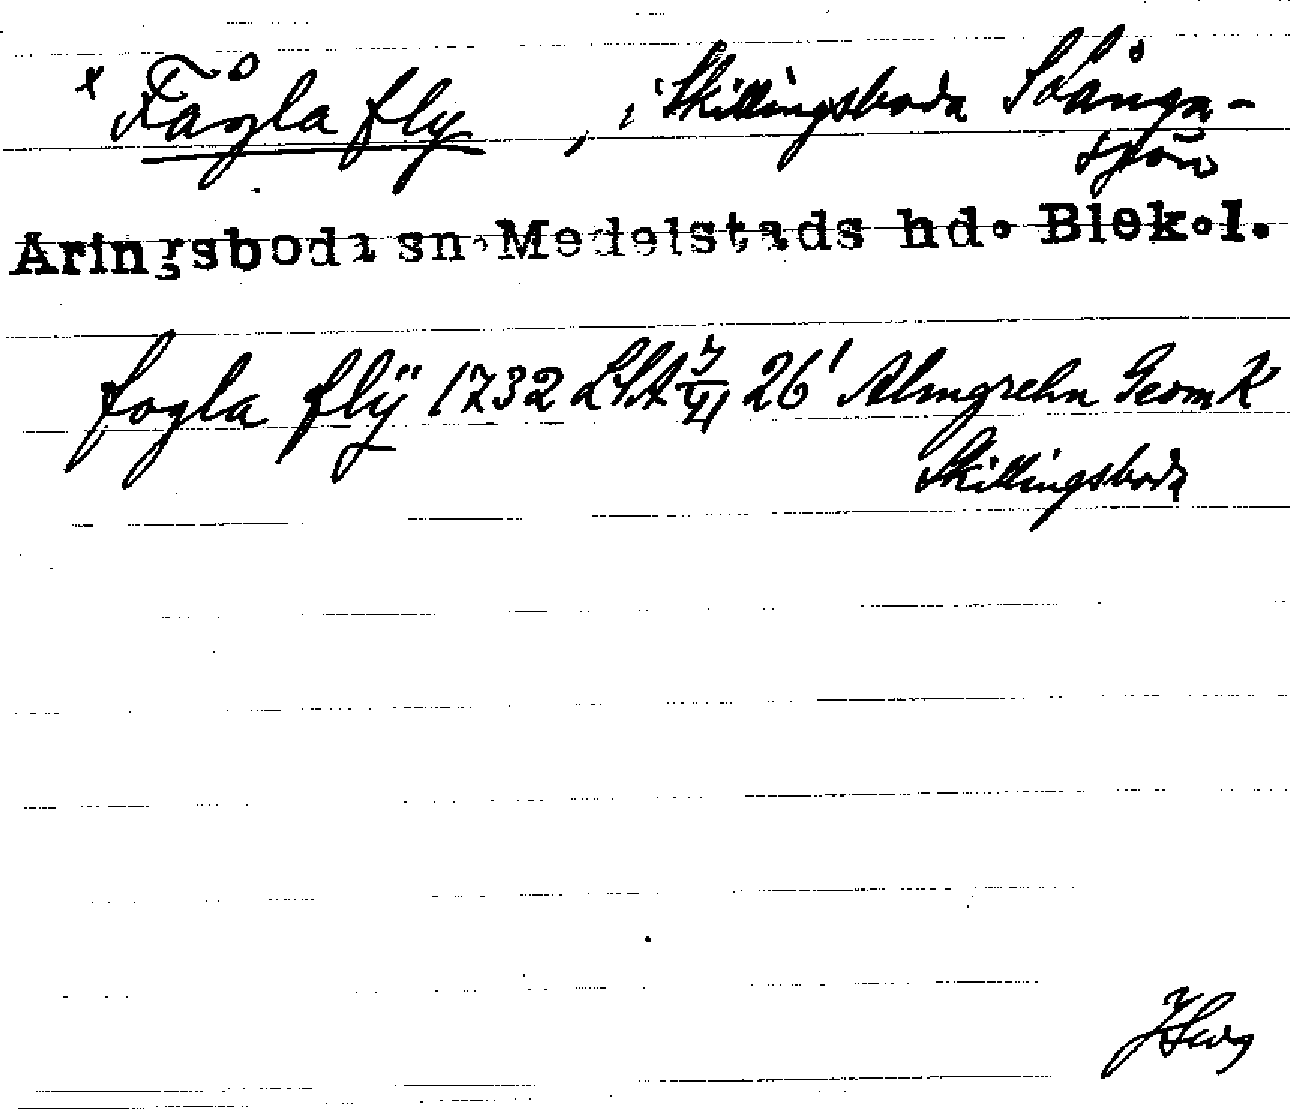 x Fågla fly , i Skillingsboda Stånga-
Aringsboda sn. Medelstads hd. Blek.l.
fogla flÿ 1732 LSA 7/VI 26' Almgrehn Geom K
Skillingsboda